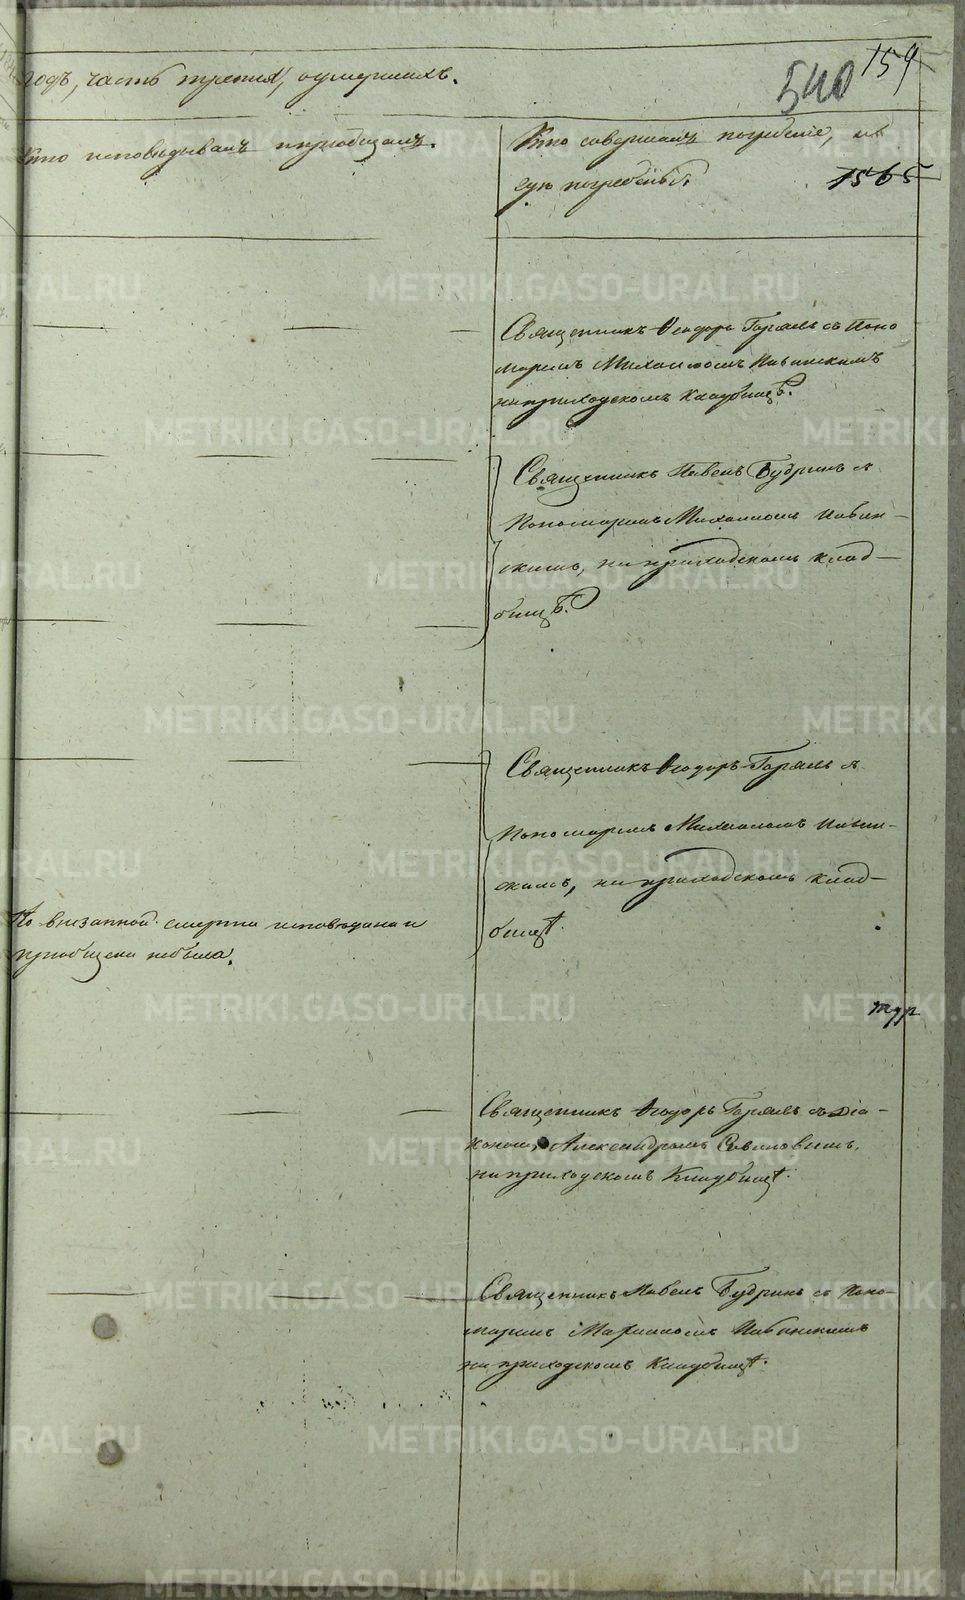 годъ, часть третія, о умершихъ.
540 159
Кто исповѣдывалъ и пріобщалъ.
Кто совершалъ погребеніе, и
гдѣ погребены.
1565
Священникъ Ѳеодоръ Горяевъ съ Поно
маремъ Михаиломъ
на приходскомъ кладбищѣ.
Священникъ Павелъ Будринъ съ
Пономаремъ Михаиломъ
скимъ, на приходскомъ клад-
бищѣ.
Священникъ Ѳеодоръ съ
Пономаремъ Михаиломъ
скимъ, на приходскомъ клад-
бищѣ.
По внезапной смерти исповѣдана и
пріобщена небыла.
Священникъ Ѳеодоръ съ Діа-
кономъ Александромъ
на приходскомъ Кладбищѣ.
Священникъ Павелъ Будринъ съ Поно-
маремъ Михаиломъ
на приходскомъ Кладбищѣ.
METRIKI.GASO-URAL.RU